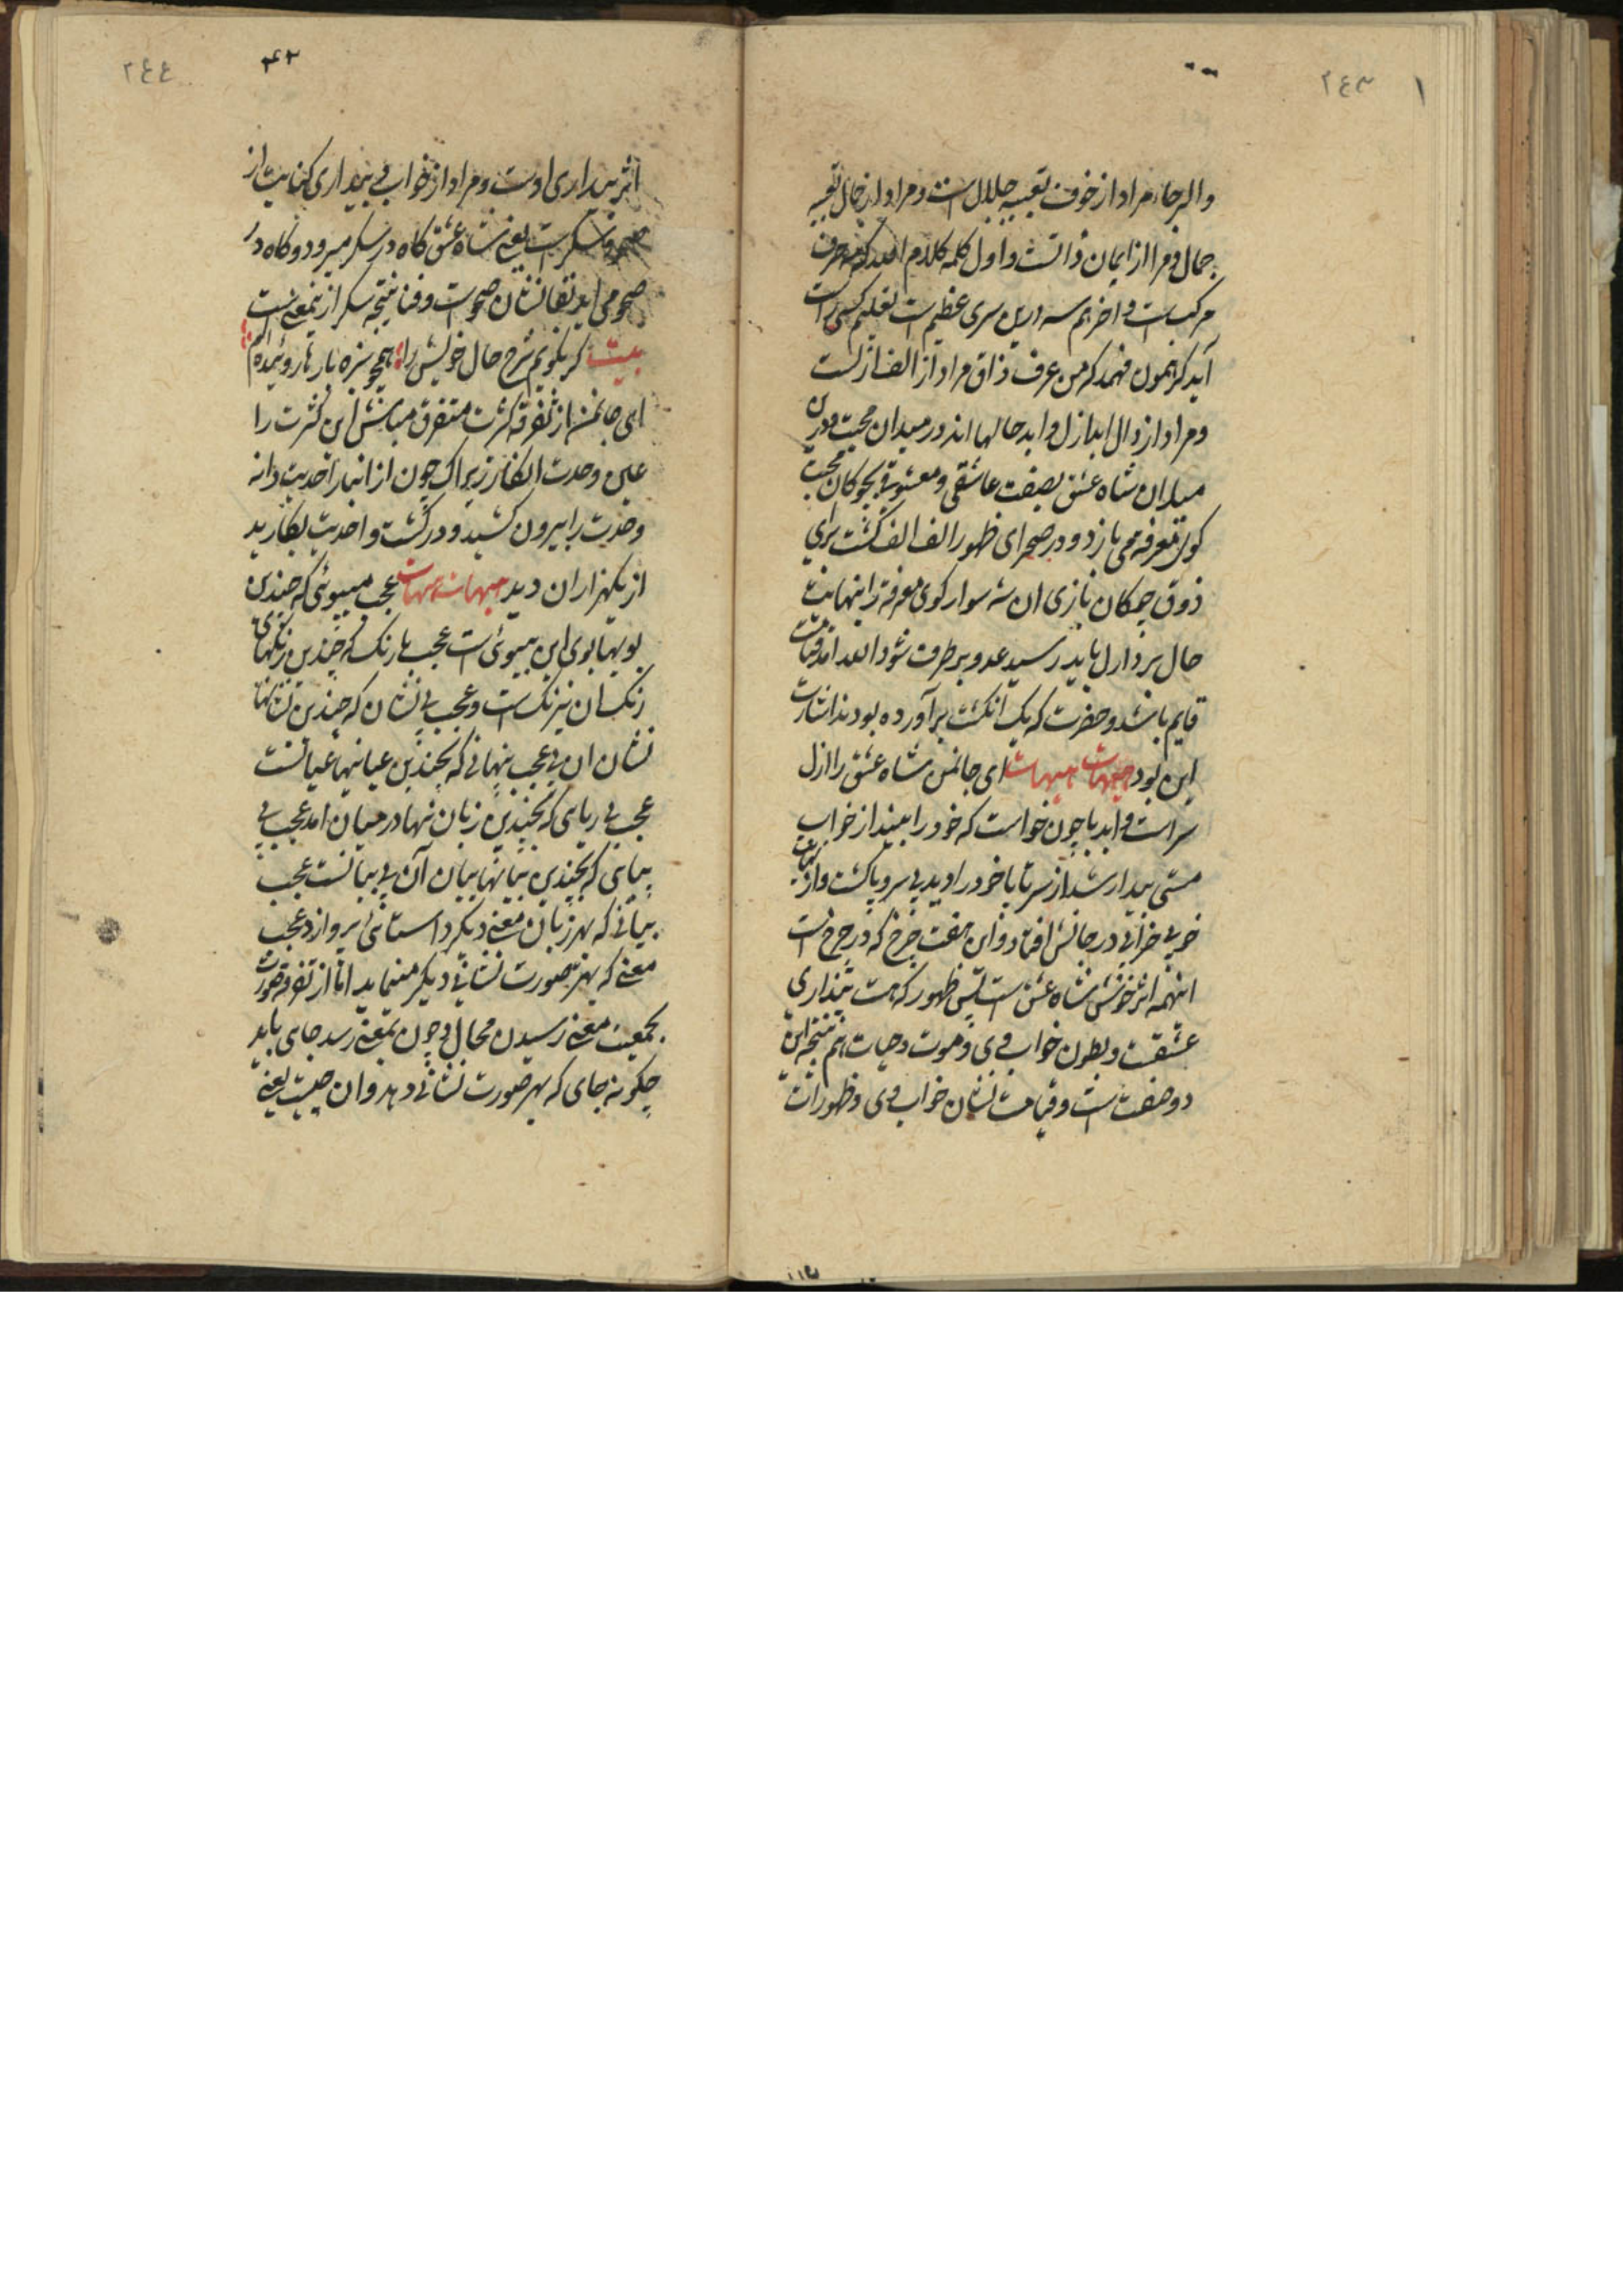 ٢٤٣
والرجاء مراد از خوف تعبیه جلال است و مراد از جمال تعبیه
جمال و مرا از ایمان ذاتست و اول کلمه کلام الله که سه حرف
مرکبست و اخر هم سه درین سری عظیم است تعلیم کسی راست
آید که مفهوم فهمد که من عرف ذاق مراد از الف ازلست
و مراد از دال ابد ازل و ابد حالها اند در میدان محبت و درین
میدان شاه عشق بصفت عاشقی و معشوقی بچوکان محبت
کوی معرفه می بازد و در صحرای ظهور الف الف کشت برای
ذوق چوکان بازی ان شه سوار کوی معرفه را نهایت
حال بر دار ل باید رسید عدو بر طرف شود ابعد از قیامت
قایم باشد و حضرت که یک انکشت برآورده بودند اشارت
این بود هیهات هیهات ای جانمن شاه عشق را ازل
سراست و ابد پا چون خواست که خود را بیند از خواب
مستی بیدار شد از سر تا پا خود را دید بی سر و پا کشت و از
خر بی خرابی در جانش افتاد و این هفت چرخ که در چرخ است
اینهمه اثر خوشی شاه عشق است پس ظهور که هست بیداری
عشقست و بطون خواب وی و موت و حیات هم نتیجه این
دو صفت است و قیامت نشان خواب وی و ظهورات
٢٤٤
اثر بیداری اوست و مراد از خواب و بیداری کنایت از
صحو و سکر است یعنی شاه عشق کاه در سکر میرود و کاه در
صحو می اید بقا نشان صحوست و فنا نتیجه سکر ازینمعنی است
بیت کر بکویم شرح حال خویش را همچو سبزه بارها روئیده ام
ای جانمن از تفرقه کثرت متفرق مباش این کثرت را
عین وحدت انکار زیراک چون از انبار احدیت دانه
وحدت را بیرون کشید و در کشت واحدیت بکارید
از یک هزاران دید هیهات هیهات عجب بیبوئی که چندین
بویها بوی این بیبوئی است عجب بارنک که چندین رنکهای
رنک ان نیرنک است و عجب بی نشان که چندین نشانها
نشان ان بی عجب پنهانی که بچندین عیانیها عیانست
عجب بی ریای که بچندین زبان نهادر میان امد عجب بی
بیانی که بچندین بیانها بیان آن بی بیانست عجب
بیانی که بهر زبان معنی دیکر داستانی پردازد عجب
معنی که بهر صورت نشانی دیکر مینماید اما از تفرقه صورت
بجمعیت معنی رسیدن محال و چون بمعنی رسد جای باید
چکونه جای که بهر صورت نشانی دهد و ان چیست یعنی